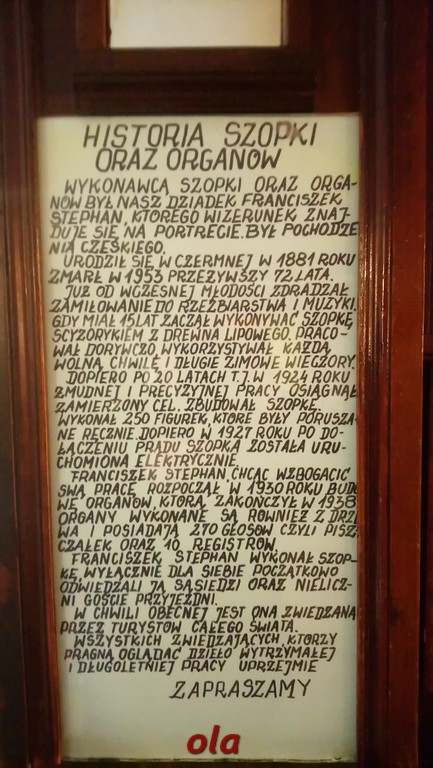 HISTORIA SZOPKI
ORAZ ORGANÓW
WYKONAWCĄ SZOPKI ORAZ ORGA-
NÓW BYŁ NASZ DZIADEK FRANCISZEK
STEPHAN, KTÓREGO WIZERUNEK ZNAJ-
DUJE SIĘ NA PORTRECIE. BYŁ POCHODZE
NIA CZESKIEGO.
URODZIŁ SIĘ W CZERMNEJ W 1881 ROKU
ZMARŁ W 1953 PRZEŻYWSZY 72 LATA.
JUŻ OD WCZESNEJ MŁODOŚCI ZDRADZAŁ
ZAMIŁOWANIE DO RZEŹBIARSTWA I MUZYKI.
GDY MIAŁ 15 LAT ZACZĄŁ WYKONYWAĆ SZOPKĘ
SCYZORYKIEM Z DREWNA LIPOWEGO. PRACO-
WAŁ DORYWCZO, WYKORZYSTYWAŁ KAŻDĄ
WOLNĄ CHWILĘ I DŁUGIE ZIMOWE WIECZORY.
DOPIERO PO 20 LATACH T.J. W 1924 ROKU
ŻMUDNEJ I PRECYZYJNEJ PRACY OSIĄGNĄŁ
ZAMIERZONY CEL. ZBUDOWAŁ SZOPKĘ.
WYKONAŁ 250 FIGUREK, KTÓRE BYŁY PORUSZA-
NE RĘCZNIE. DOPIERO W 1927 ROKU PO DO-
ŁĄCZENIU PRĄDU SZOPKA ZOSTAŁA URU-
CHOMIONA ELEKTRYCZNIE.
FRANCISZEK STEPHAN CHCĄC WZBOGACIĆ
SWĄ PRACĘ ROZPOCZĄŁ W 1930 ROKU BUDO
WĘ ORGANÓW, KTÓRĄ ZAKOŃCZYŁ W 1938
ORGANY WYKONANE SĄ RÓWNIEŻ Z DRZE
WA I POSIADAJĄ 270 GŁOSÓW CZYLI PISZ
CZAŁEK ORAZ 10 REGISTRÓW
FRANCISZEK STEPHAN WYKONAŁ SZOP-
KĘ, WYŁĄCZNIE DLA SIEBIE POCZĄTKOWO
ODWIEDZALI JĄ SĄSIEDZI ORAZ NIELICZ-
NI GOŚCIE PRZYJEZDNI.
W CHWILI OBECNEJ JEST ONA ZWIEDZANA
PRZEZ TURYSTÓW CAŁEGO ŚWIATA.
WSZYSTKICH ZWIEDZAJĄCYCH, KTÓRZY
PRAGNĄ OGLĄDAĆ DZIEŁO WYTRZYMAŁEJ
I DŁUGOLETNIEJ PRACY UPRZEJMIE
ZAPRASZAMY
ola